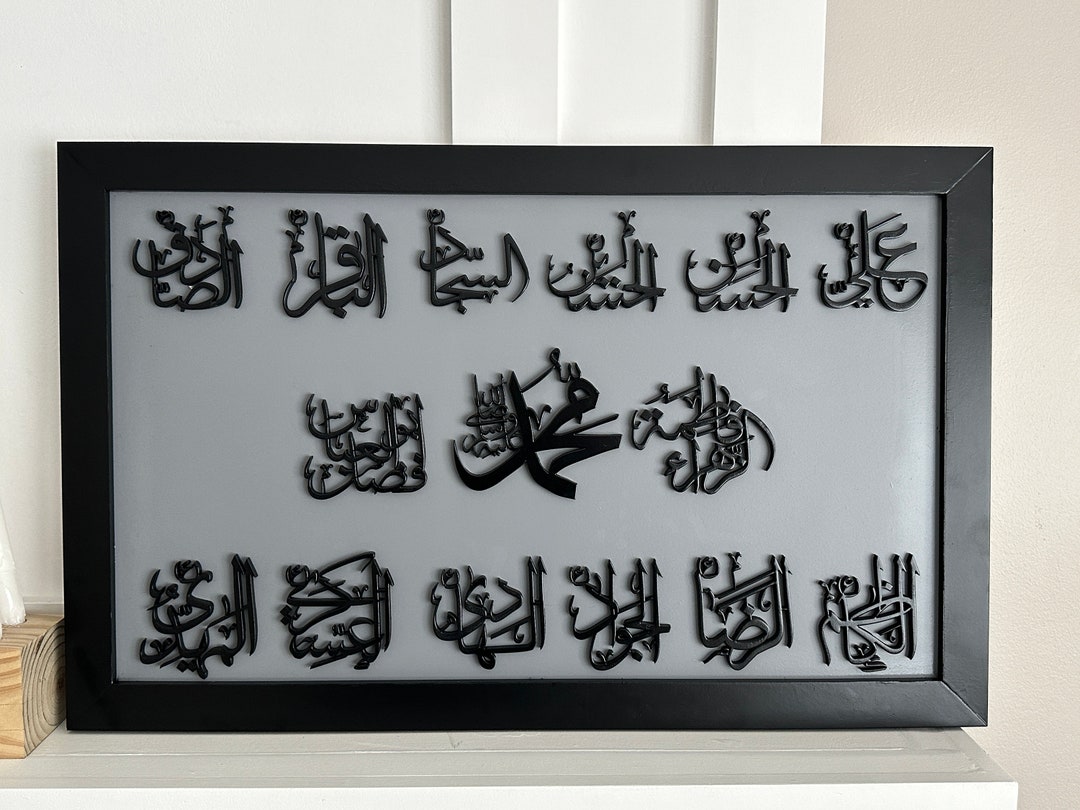 علي الحسن الحسين السجاد الباقر الصادق
فاطمة الزهراء محمد ابو الفضل العباس
الكاظم الرضا الجواد الهادي العسكري المهدي